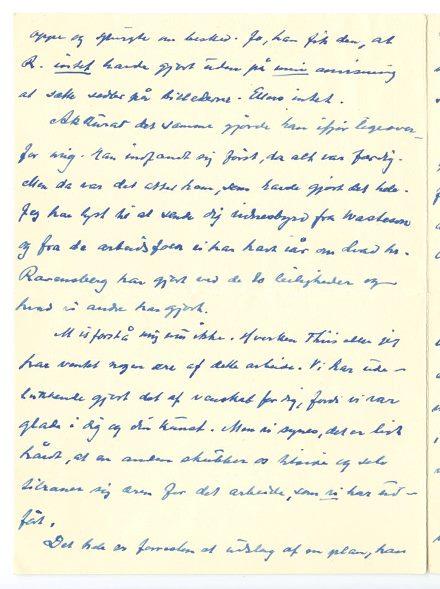 oppe og spurgte om besked. Jo, han fik den, at
R. intet havde gjort uden på min anvisning
at sætte sedler på billederne. Ellers intet.
Akkurat det samme gjorde han ifjor ligeover-
for mig. Han indfandt sig først, da alt var færdig.
Men da var det atter ham, som havde gjort det hele.
Jeg har lyst til at sende dig vidnesbyrd fra
og fra de arbeidsfolk vi har havt iår om hvad hr.
Ravensberg har gjort ved de to leiligheder og
hvad vi andre har gjort.
Misforstå mig nu ikke. Hverken Thiis eller jeg
har ventet nogen ære af dette arbeide. Vi har ude-
lukkende gjort det af venskab for dig, fordi vi var
glade i dig og din kunst. Men vi synes, det er lidt
hårdt, at en anden skubber os tilside og selv
tilraner sig æren for det arbeide, som vi har ud-
ført.
Det hele er forresten et udslag af en plan, han